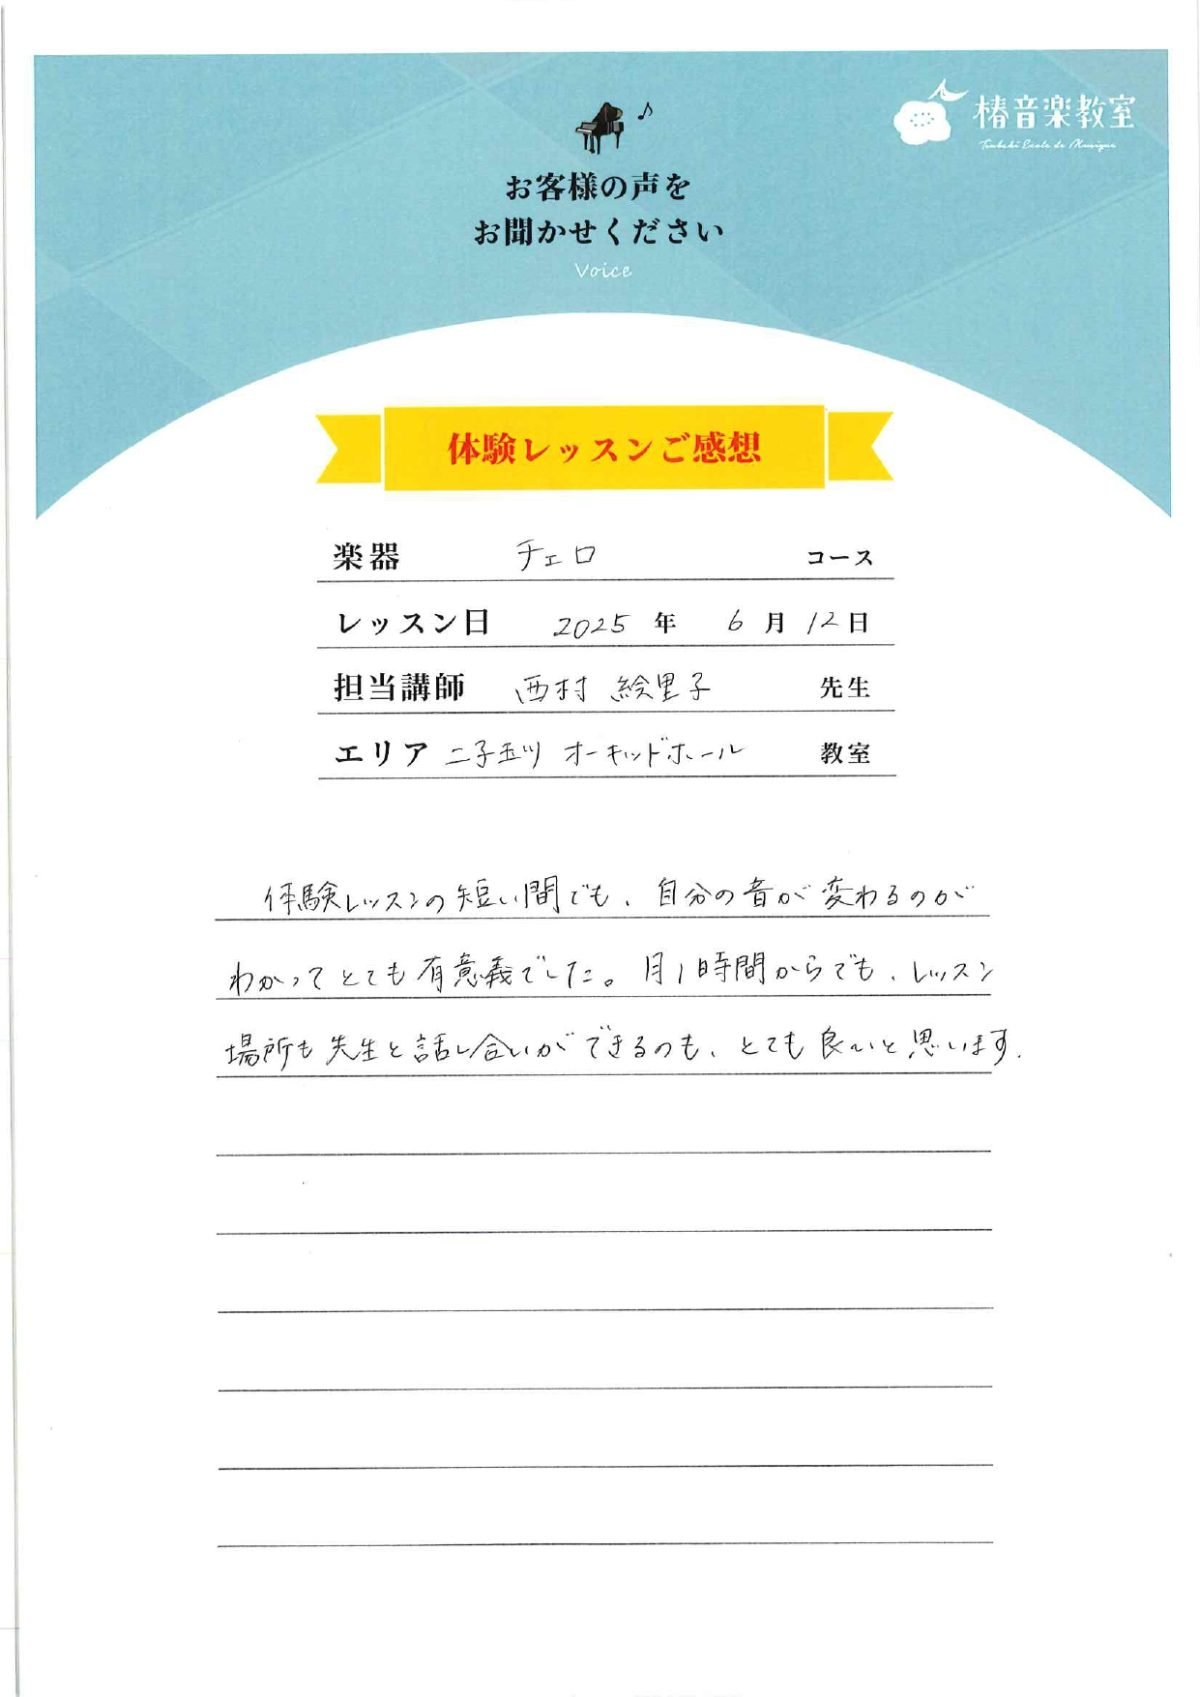 椿音楽教室
Tsubaki Ecole de Musique
お客様の声を
お聞かせください
Voice
体験レッスンご感想
楽器 チェロ コース
レッスン日 2025 年 6 月 12 日
担当講師 西村 絵里子 先生
エリア 二子玉川 オーキッドホール 教室
体験レッスンの短い間でも、自分の音が変わるのが
わかってとても有意義でした。月1時間からでも、レッスン
場所も先生と話し合いができるのも、とても良いと思います.